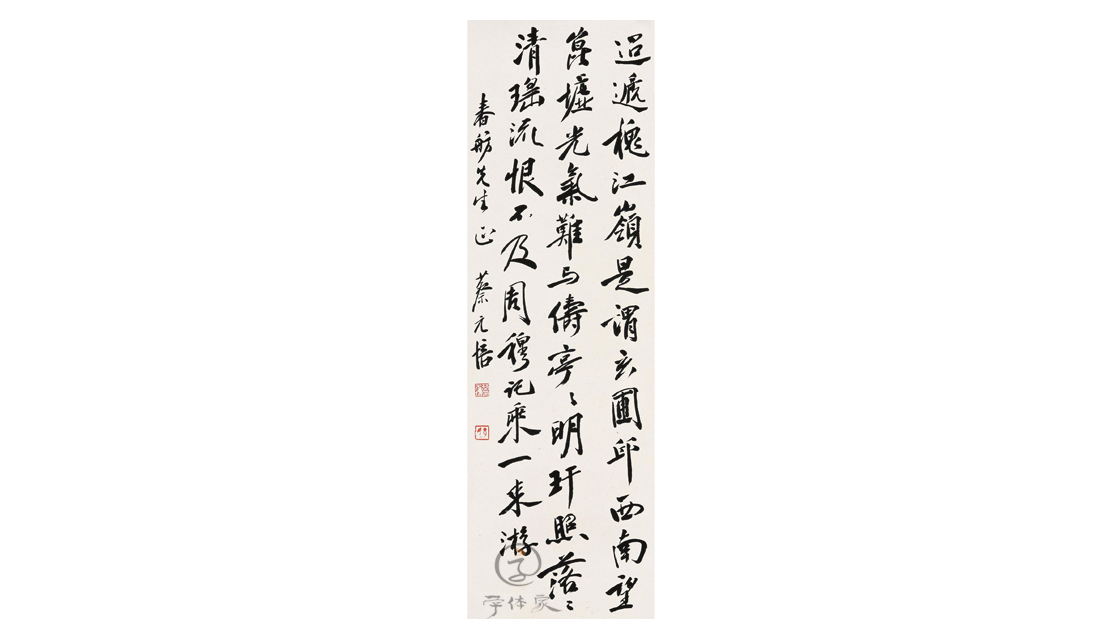 迢遞槐江嶺是謂玄圃邱西南望
崑墟光氣難与儔亭〻明玕照落〻
清瑤流恨不及周穆託乘一来游
春舫先生正 蔡元培
字体家